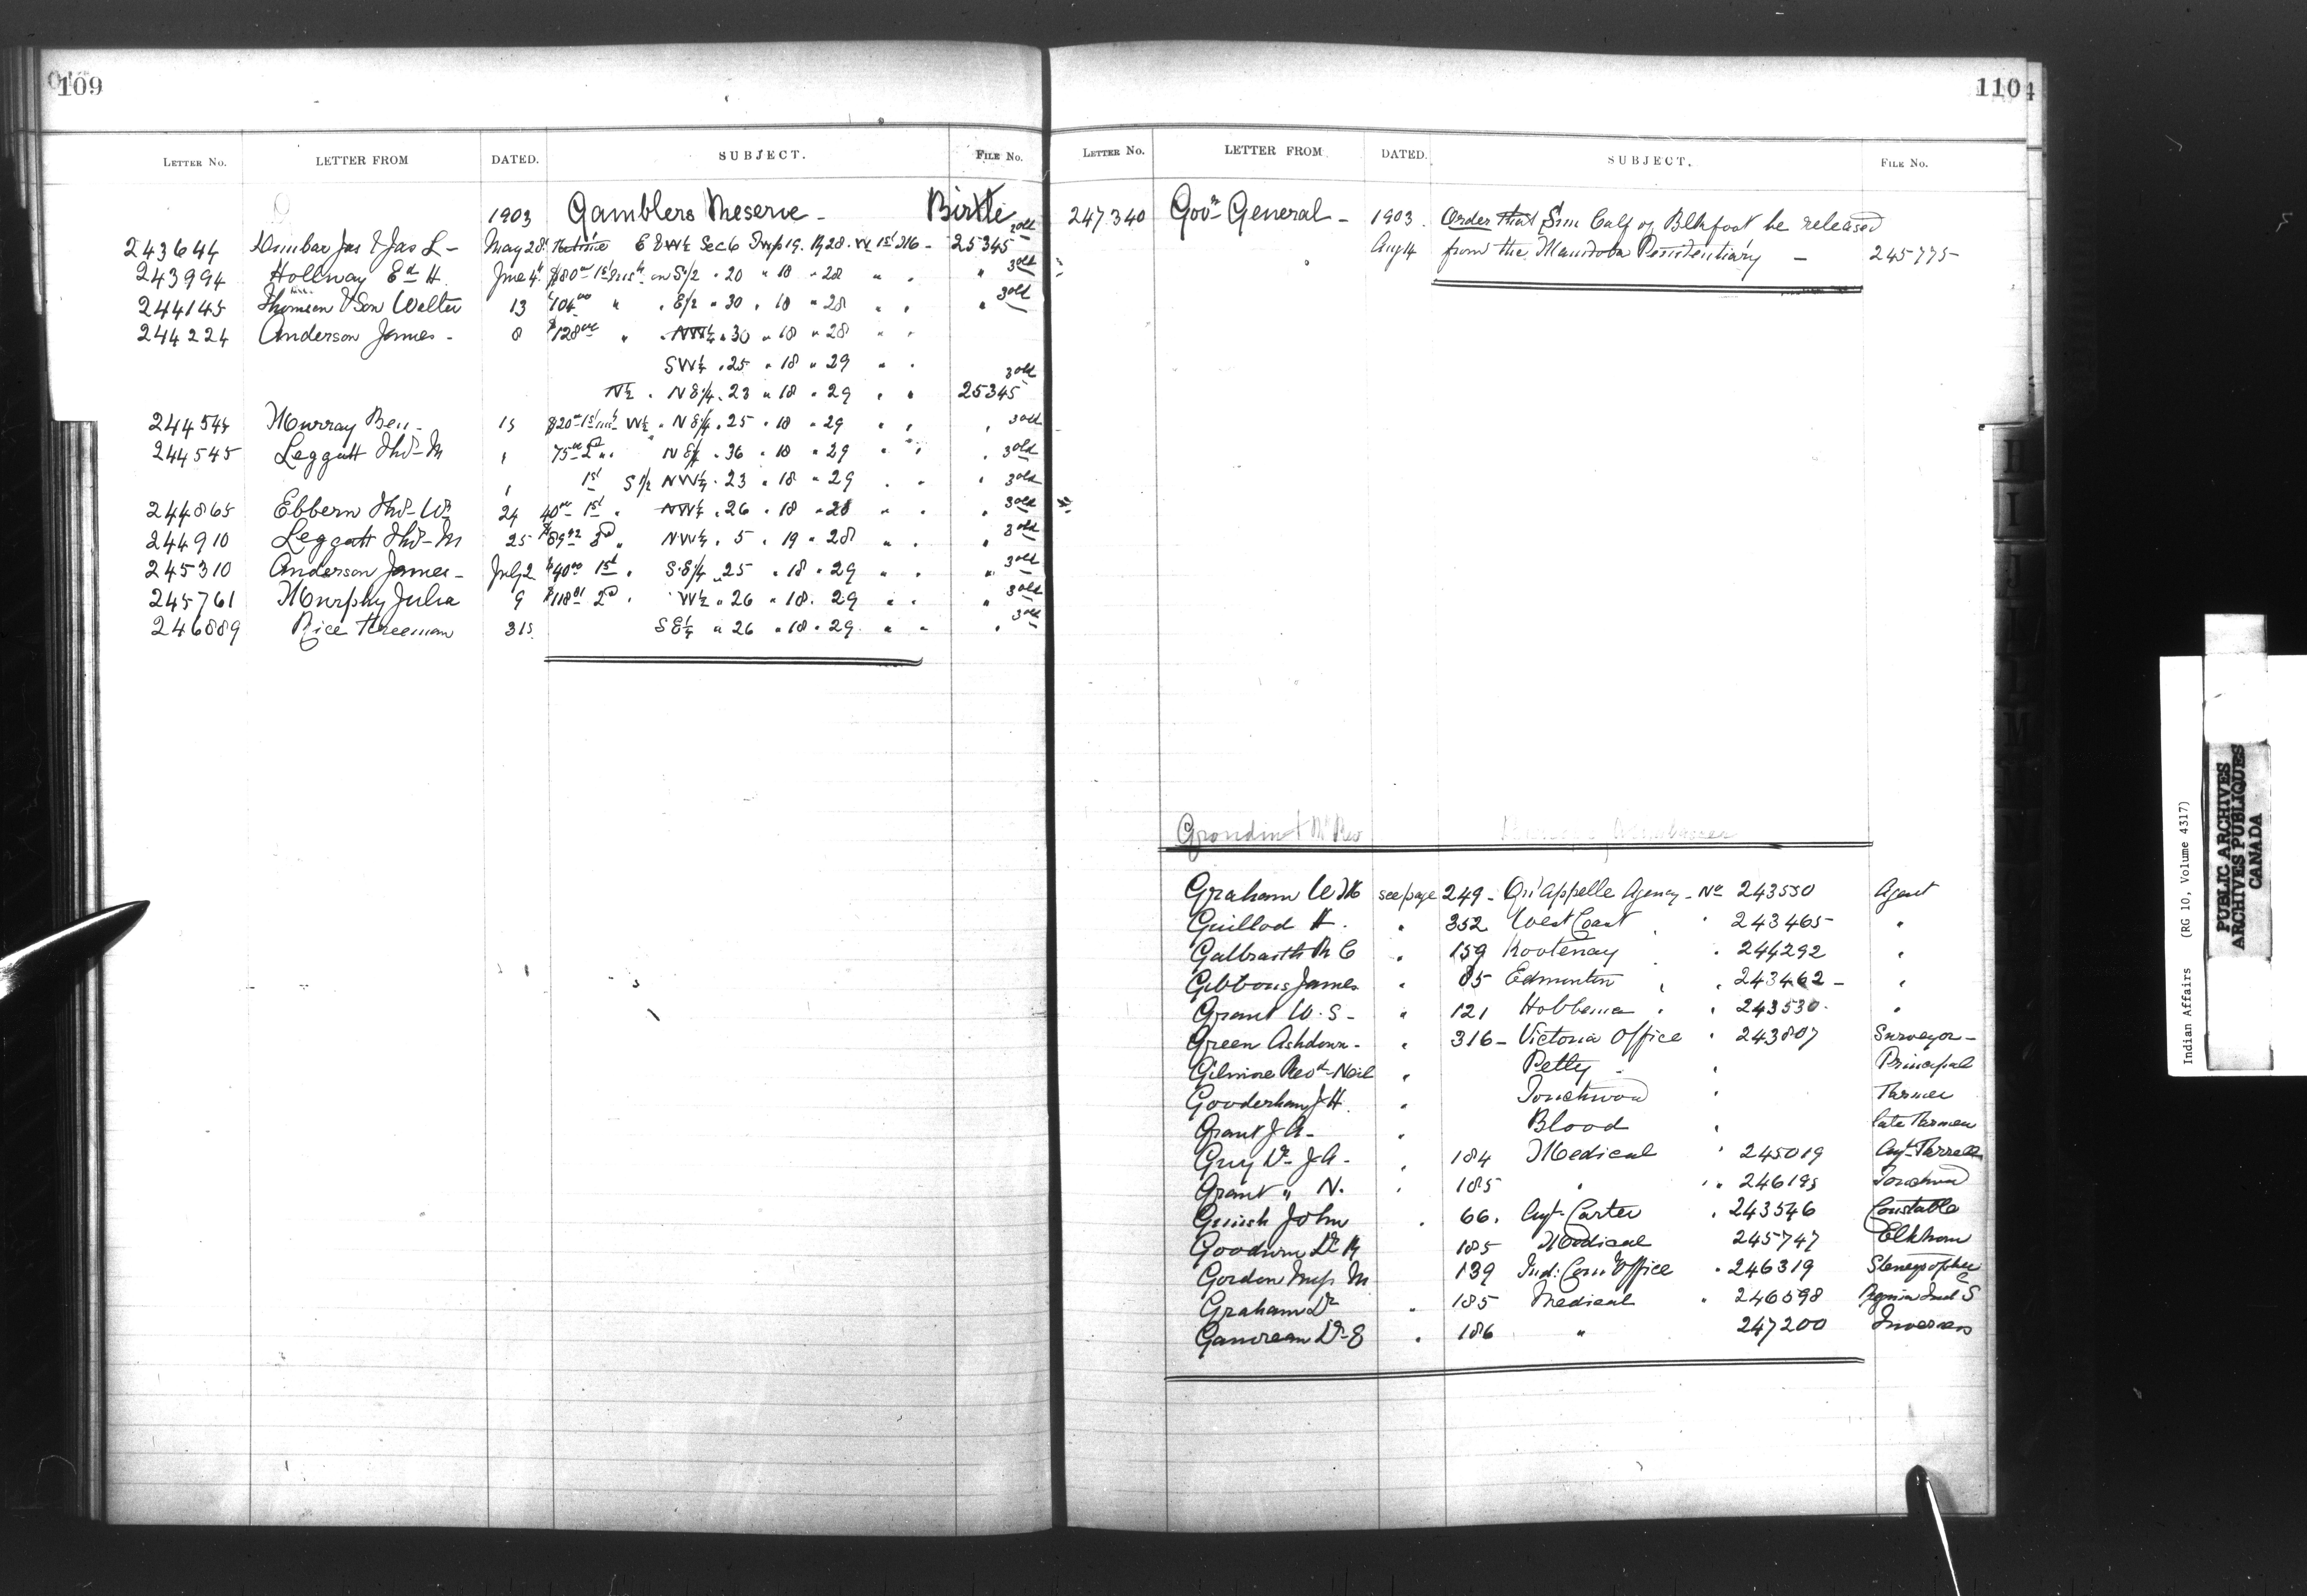 109
LETTER No. LETTER FROM DATED. SUBJECT. FILE No.
1903 Gamblers Reserve - Birtle
243644 Dunbar Jas & Jas L - May 28 E SW¼ Sec 6 Twp 19. R 28. W 1st M - 25345 3 old
243994 Hollway Ed H. June 4 $80 00 1st Inst on S 1/2 " 20 " 18 " 28 " " " 3 old
244145 Thomson & Son Walter 13 $104 00 " " E/2 " 30 " 18 " 28 " " " 3 old
244224 Anderson James - 8 $128 00 " NW¼ " 30 " 18 " 28 " "
SW¼ " 25 " 18 " 29 " "
N½ " N E 1/4 " 23 " 18 " 29 " " 25345 3 old
244544 Murray Ben - 15 $20 00 1st inst W½ " N E 1/4 " 25 " 18 " 29 " " " 3 old
244545 Leggatt Thos M " 75 00 2d " N E¼ " 36 " 18 " 29 " " " 3 old
" 1st S 1/2 NW¼ " 23 " 18 " 29 " " " 3 old
244865 Ebbern Thos Wm 24 40 00 1st " NW¼ " 26 " 18 " 28 " " " 3 old
244910 Leggatt Thos M 25 $89 92 3d " NW¼ " 5 " 19 " 28 " " " 3 old
245310 Anderson James - July 2 $40 00 1st " S.E 1/4 " 25 " 18 " 29 " " " 3 old
245761 Murphy Julia 9 $118 01 2d " W½ " 26 " 18 " 29 " " " 3 old
246889 Rice Freeman 31 S E¼ " 26 " 18 " 29 " " " 3 old
110
LETTER No. LETTER FROM DATED. SUBJECT. FILE No.
247340 Govr General - 1903. Order that Calf of Blkfoot be released
Aug 14 from the Manitoba Penitentiary - 245775
Grondin Rev
Graham W M see page 249 - Qu'Appelle Agency - No 243550 Agent
Guillod H. " 352 West Coast " " 243465 "
Galbraith R C " 159 Kootenay " " 244292 "
Gibbons James " 85 Edmonton " " 243462 - "
Grant W. S - " 121 Hobbema " " 243530 "
Green Ashdown - " 316 - Victoria Office " 243807 Surveyor -
Gilmore Revd Neil " Pelly " " Principal
Gooderham J H. " Touchwood " Farmer
Grant J A - " Blood " late Farmer
Guy Dr J A - " 184 Medical " 245019
Grant " N. " 185 " " 246195 Touchwood
John " 66. Carter " 243546 Constable
Goodwin Dr R 185 Medical 245747 Elkhorn
Gordon Miss M 139 Ind: Com Office " 246319 Stenographer
Graham Dr " 185 Medical " 246598 Regina Ind S
Gauvreau Dr E " 186 " 247200
Indian Affairs (RG 10, Volume 4317)
PUBLIC ARCHIVES
ARCHIVES PUBLIQUES
CANADA